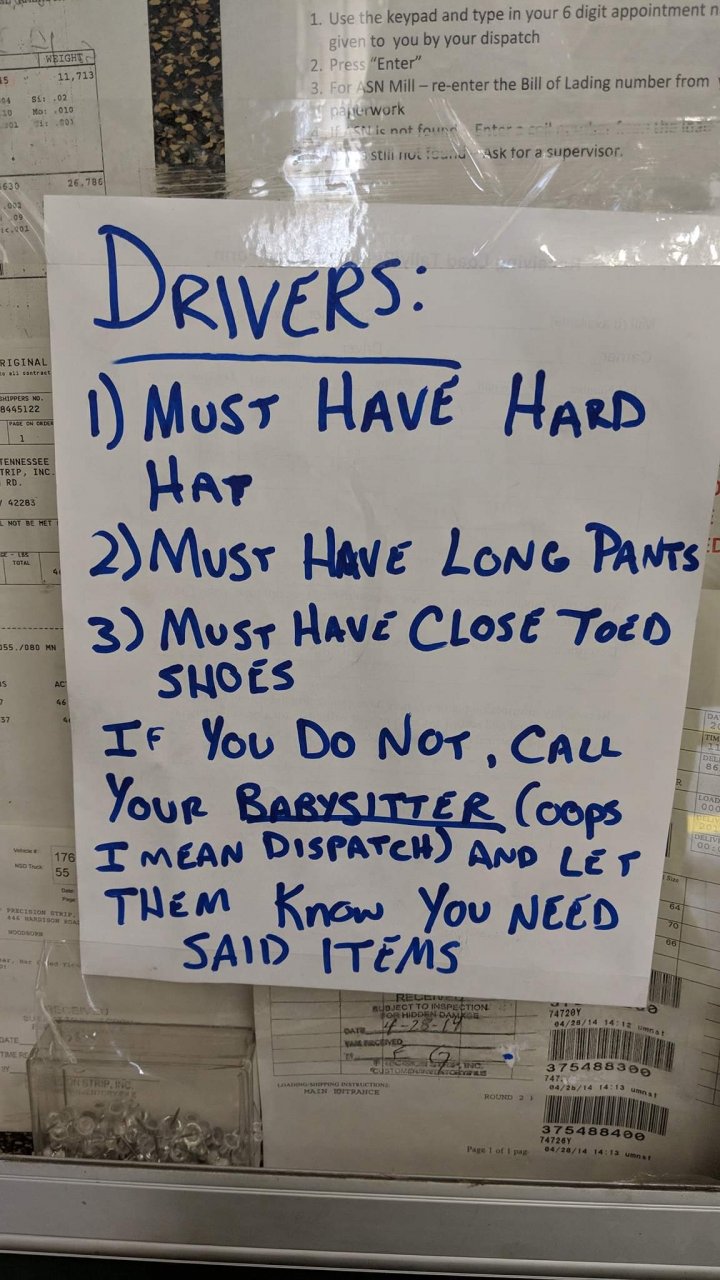 1. Use the keypad and type in your 6 digit appointment
given to you by your dispatch
2. Press "Enter"
3. For ASN Mill – re-enter the Bill of Lading number from
paperwork
still not found Ask for a supervisor.
WEIGHT
11,713
Si: .02
Mo: .010
26,786
DRIVERS:
1) MUST HAVE HARD
HAT
2) MUST HAVE LONG PANTS
3) MUST HAVE CLOSE TOED
SHOES
IF YOU DO NOT, CALL
YOUR BABYSITTER (OOPS
I MEAN DISPATCH) AND LET
THEM KNOW YOU NEED
SAID ITEMS
SHIPPERS NO.
8445122
PAGE ON ORDER
1
TENNESSEE
TRIP, INC.
RD.
42283
TOTAL
Vehicle #:
NSD Truck
176
55
Date:
Page
PRECISION STRIP,
WOODBURN
64
70
66
RECEIVED
SUBJECT TO INSPECTION
FOR HIDDEN DAMAGE
DATE 4-28-14
LOADING/SHIPPING INSTRUCTIONS:
MAIN ENTRANCE
ROUND 2
Page 1 of 1
74720Y
04/28/14 14:12 umnst
375488300
04/28/14 14:13 umnst
375488400
74726Y
04/28/14 14:13 umnst